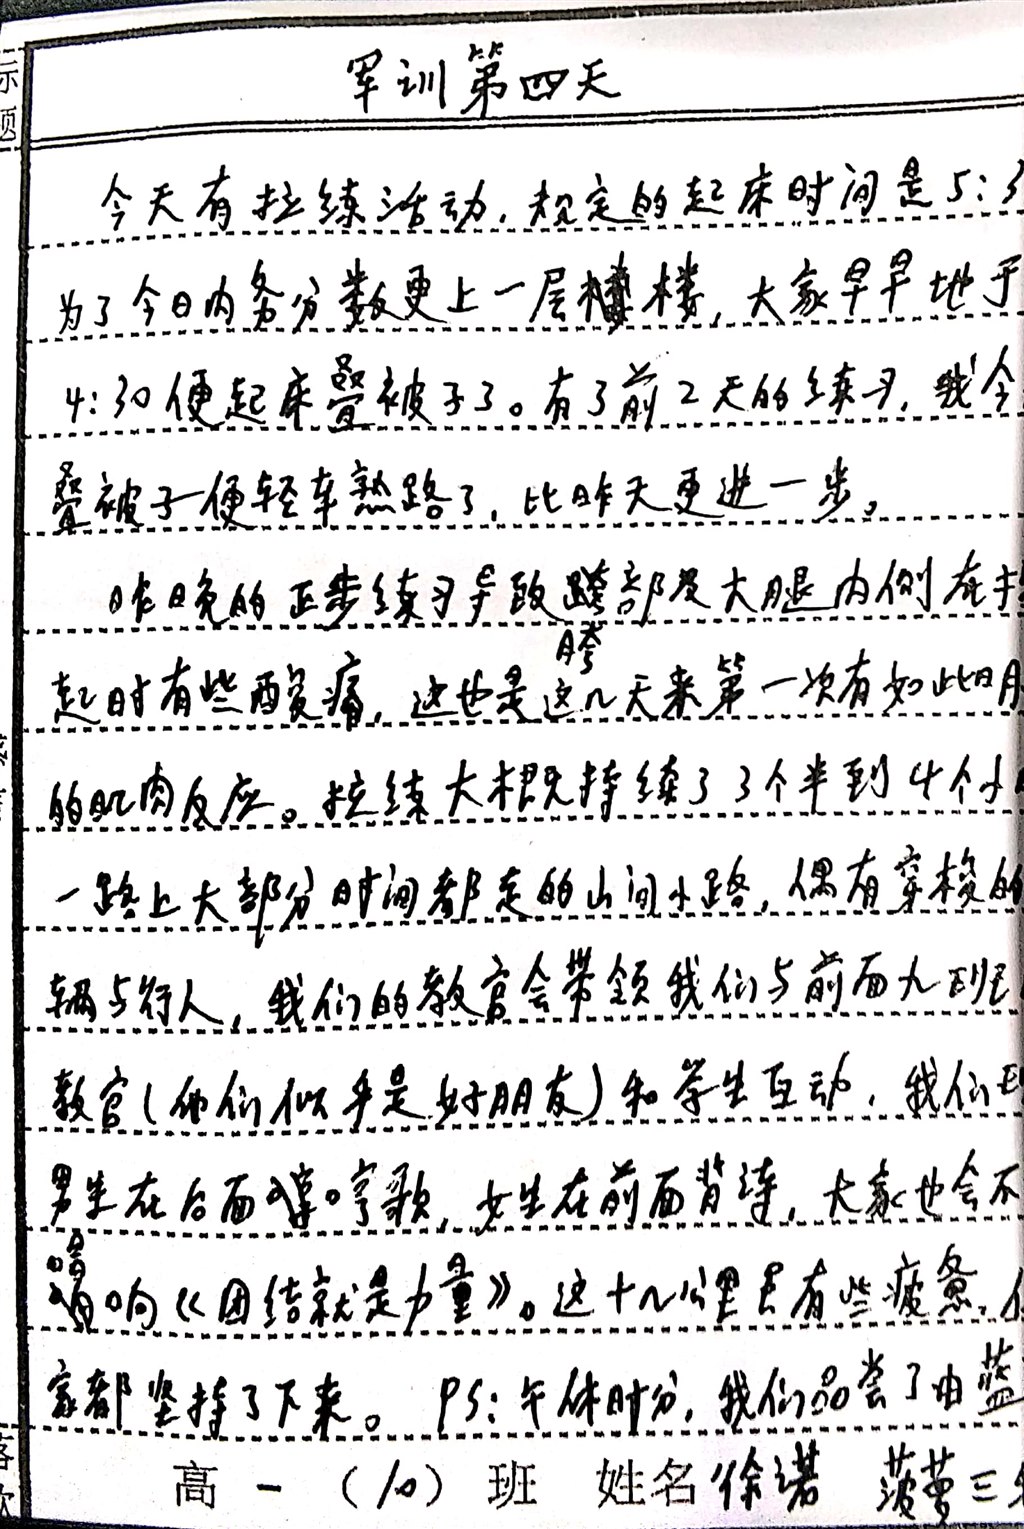 标题
军训第四天
今天有拉练活动，规定的起床时间是5:3
为了今日内务分数更上一层楼，大家早早地于
4:30便起床叠被子了。有了前2天的练习，我今
叠被子便轻车熟路了，比昨天更进一步。
昨晚的正步练习导致胯部及大腿内侧在
起时有些酸痛，这也是这几天来第一次有如此明
的肌肉反应。拉练大概持续了3个半到4个小
一路上大部分时间都走的山间小路，偶有穿梭的
辆与行人，我们的教官会带领我们与前面九班
教官(他们似乎是好朋友)和学生互动，我们班
男生在后面哼歌，女生在前面背诗，大家也会不
唱响《团结就是力量》。这十几公里虽有些疲惫，但
家都坚持了下来。 PS:午休时分，我们品尝了由蓝
落款
高一(10)班 姓名徐诺 菠萝三